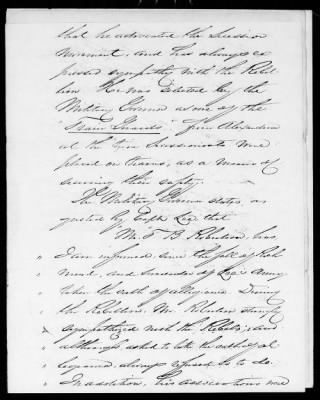 that he advocated the Secession
movement, and has always ex
pressed sympathy with the Rebel
lion. He was selected by the
Military Governor as one of the
"Train Guards," from Alexandria
at the time Secessionists were
placed on trains, as a means of
securing their safety.
The Military Governor states, as
quoted by Capt. Lee, that
"Mr. F. B. Robertson, has,
" I am informed, since the fall of Rich
" mond, and surrender of Lee's Army
" taken the oath of allegiance. During
" the Rebellion, Mr. Robertson strongly
" sympathized with the Rebels; and
" although asked to take the oath of al
" legiance, always refused to do.
" In addition, his associations were